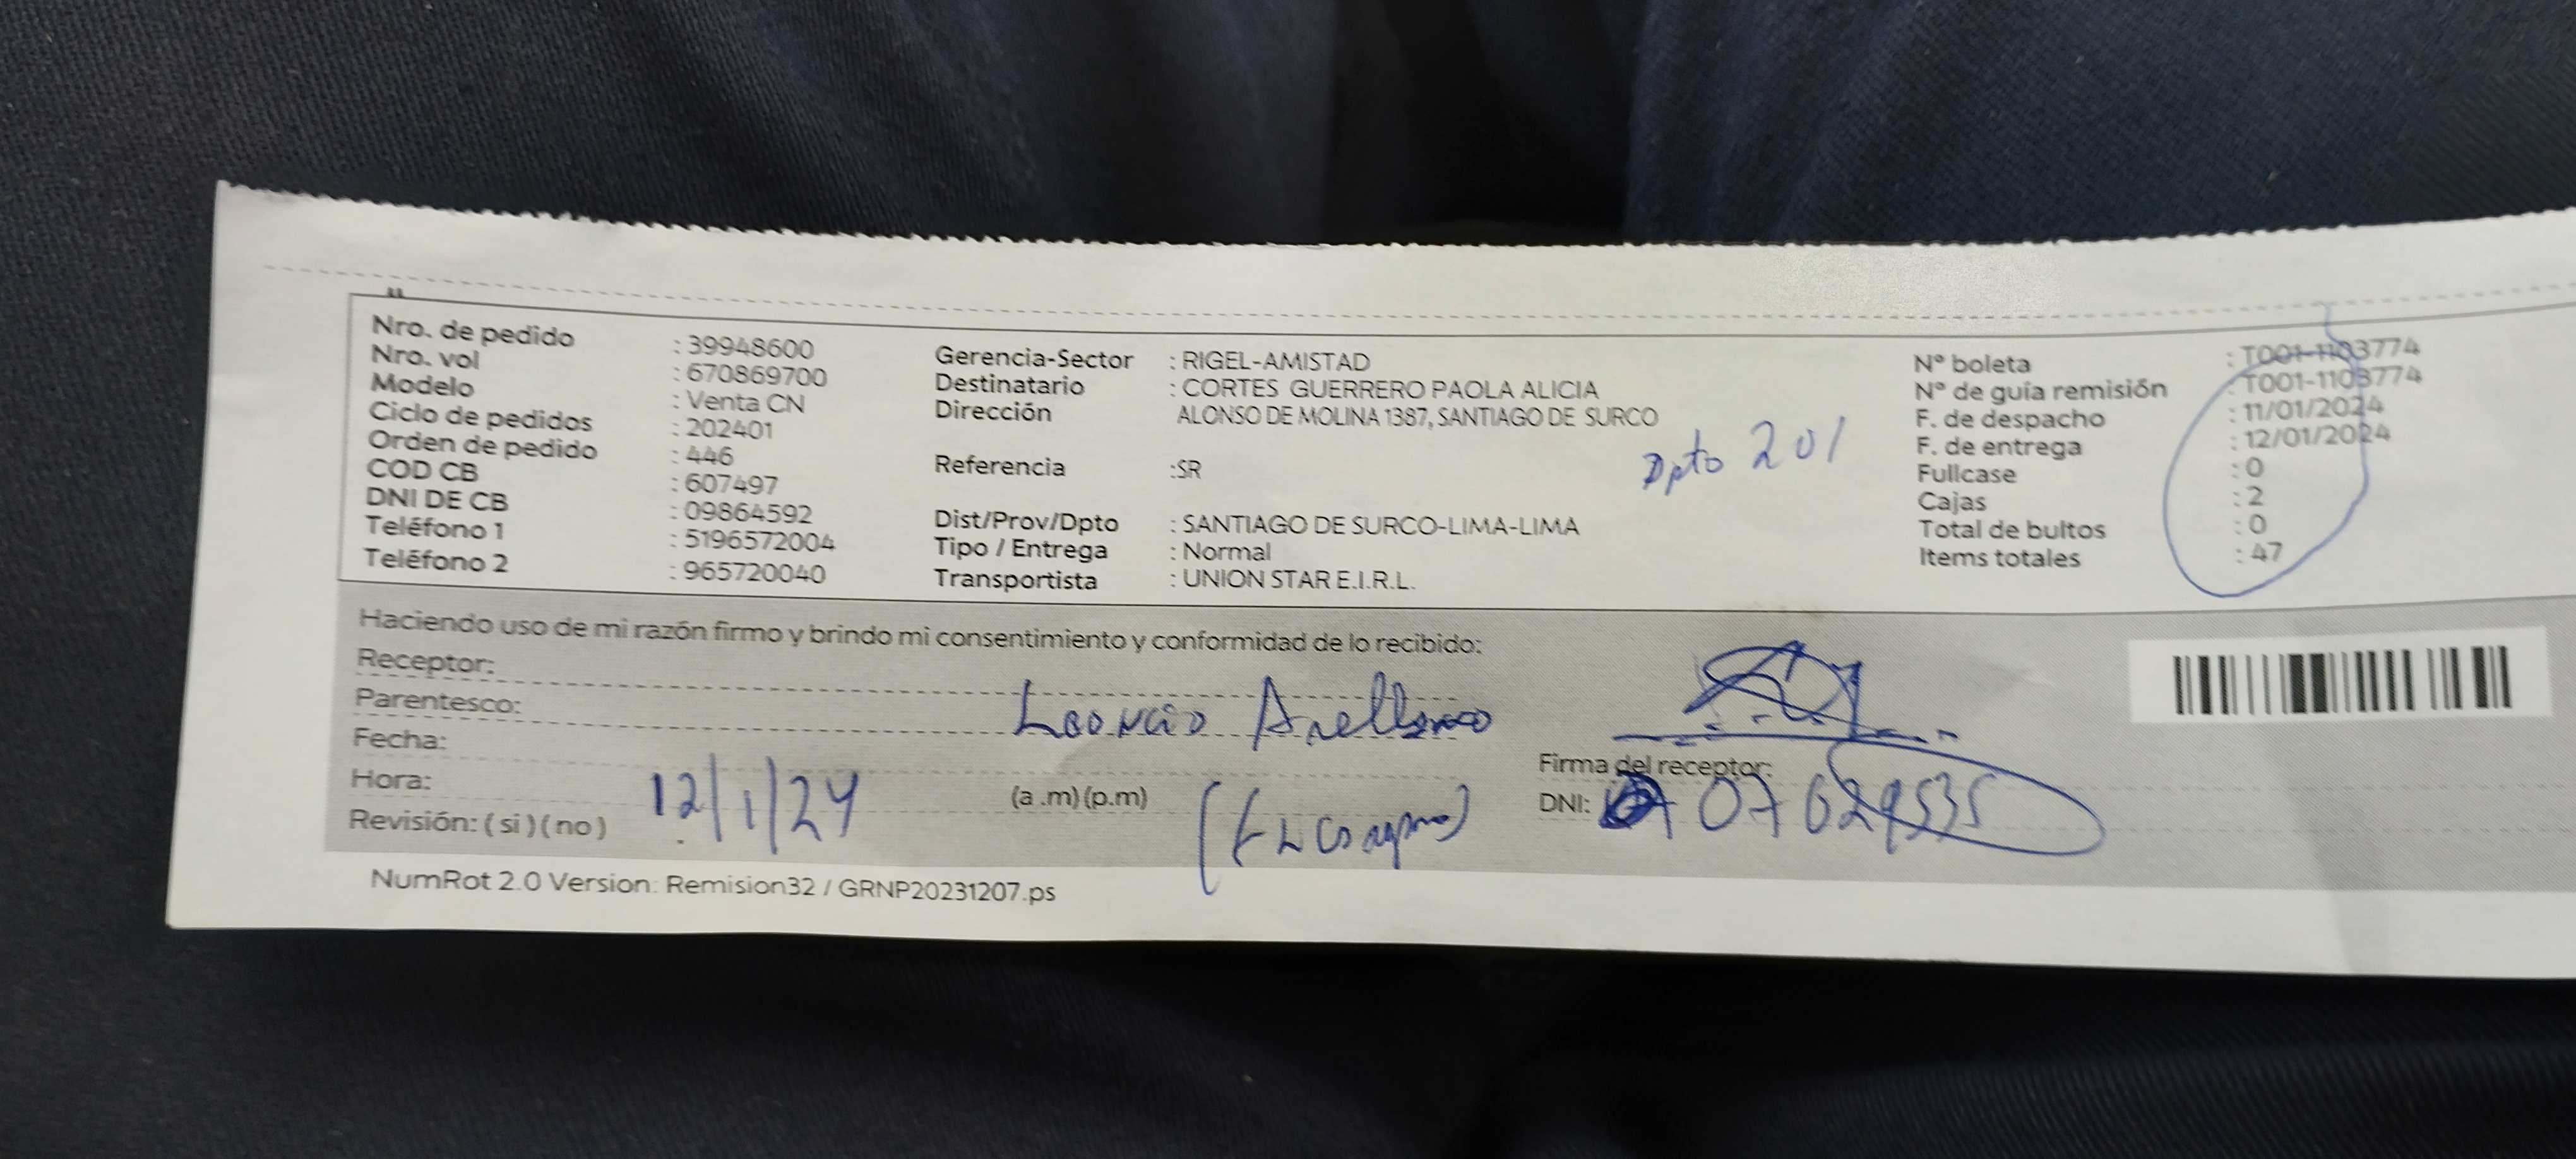 Nro. de pedido : 39948600
Nro. vol : 670869700
Modelo : Venta CN
Ciclo de pedidos : 202401
Orden de pedido : 446
COD CB : 607497
DNI DE CB : 09864592
Teléfono 1 : 5196572004
Teléfono 2 : 965720040
Gerencia-Sector : RIGEL-AMISTAD
Destinatario : CORTES GUERRERO PAOLA ALICIA
Dirección ALONSO DE MOLINA 1387, SANTIAGO DE SURCO
Dpto 201
Referencia :SR
Dist/Prov/Dpto : SANTIAGO DE SURCO-LIMA-LIMA
Tipo / Entrega : Normal
Transportista : UNION STAR E.I.R.L.
N° boleta : T001-1103774
N° de guía remisión : T001-1103774
F. de despacho : 11/01/2024
F. de entrega : 12/01/2024
Fullcase : 0
Cajas : 2
Total de bultos : 0
Items totales : 47
Haciendo uso de mi razón firmo y brindo mi consentimiento y conformidad de lo recibido:
Receptor:
Parentesco: Leoncio Arellano
Fecha:
Hora: 12/1/24 (a .m) (p.m)
Revisión: ( si ) ( no )
Firma del receptor:
DNI: 07629535
NumRot 2.0 Version: Remision32 / GRNP20231207.ps